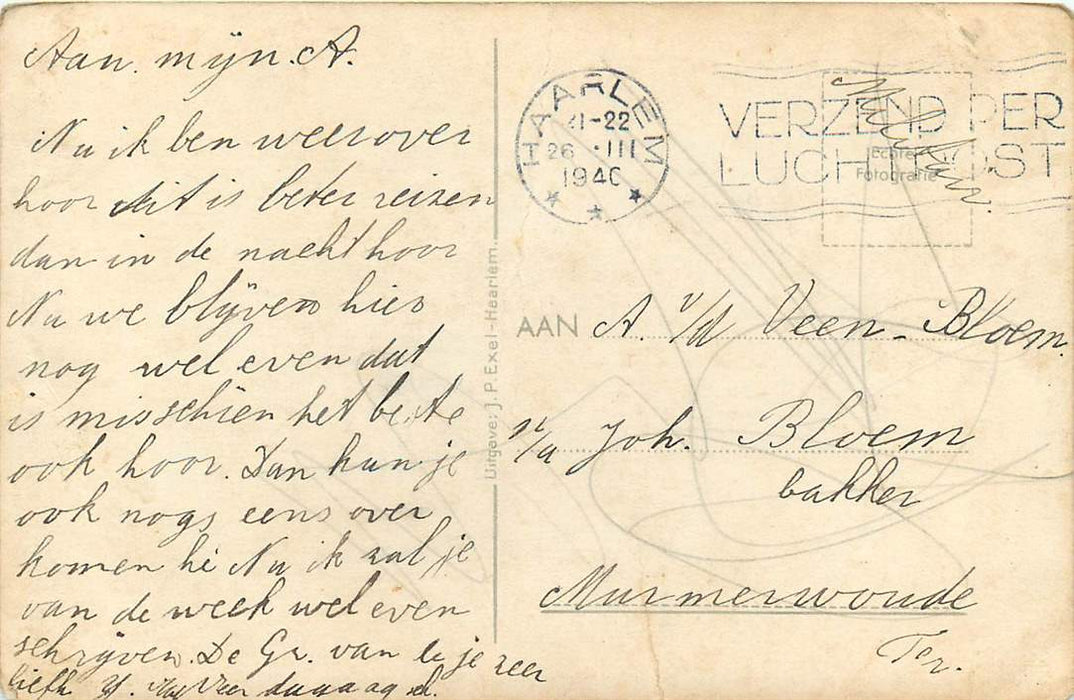 Aan. mijn. A.
Nu ik ben weer over
hoor dit is beter reizen
dan in de nacht hoor
Nu we blijven hier
nog wel even dat
is misschien het beste
ook hoor. Dan kun je
ook nogs eens over
komen hè Nu ik zal je
van de week wel even
schrijven. De Gr. van je zeer
liefh
Uitgave: J. P. Exel - Haarlem.
HAARLEM
21-22
26 · III
1940
VERZEND PER
LUCHTPOST
Militair.
Echte
Fotografie
AAN A. v/d Veen - Bloem.
p/a Joh. Bloem
bakker
Murmerwoude